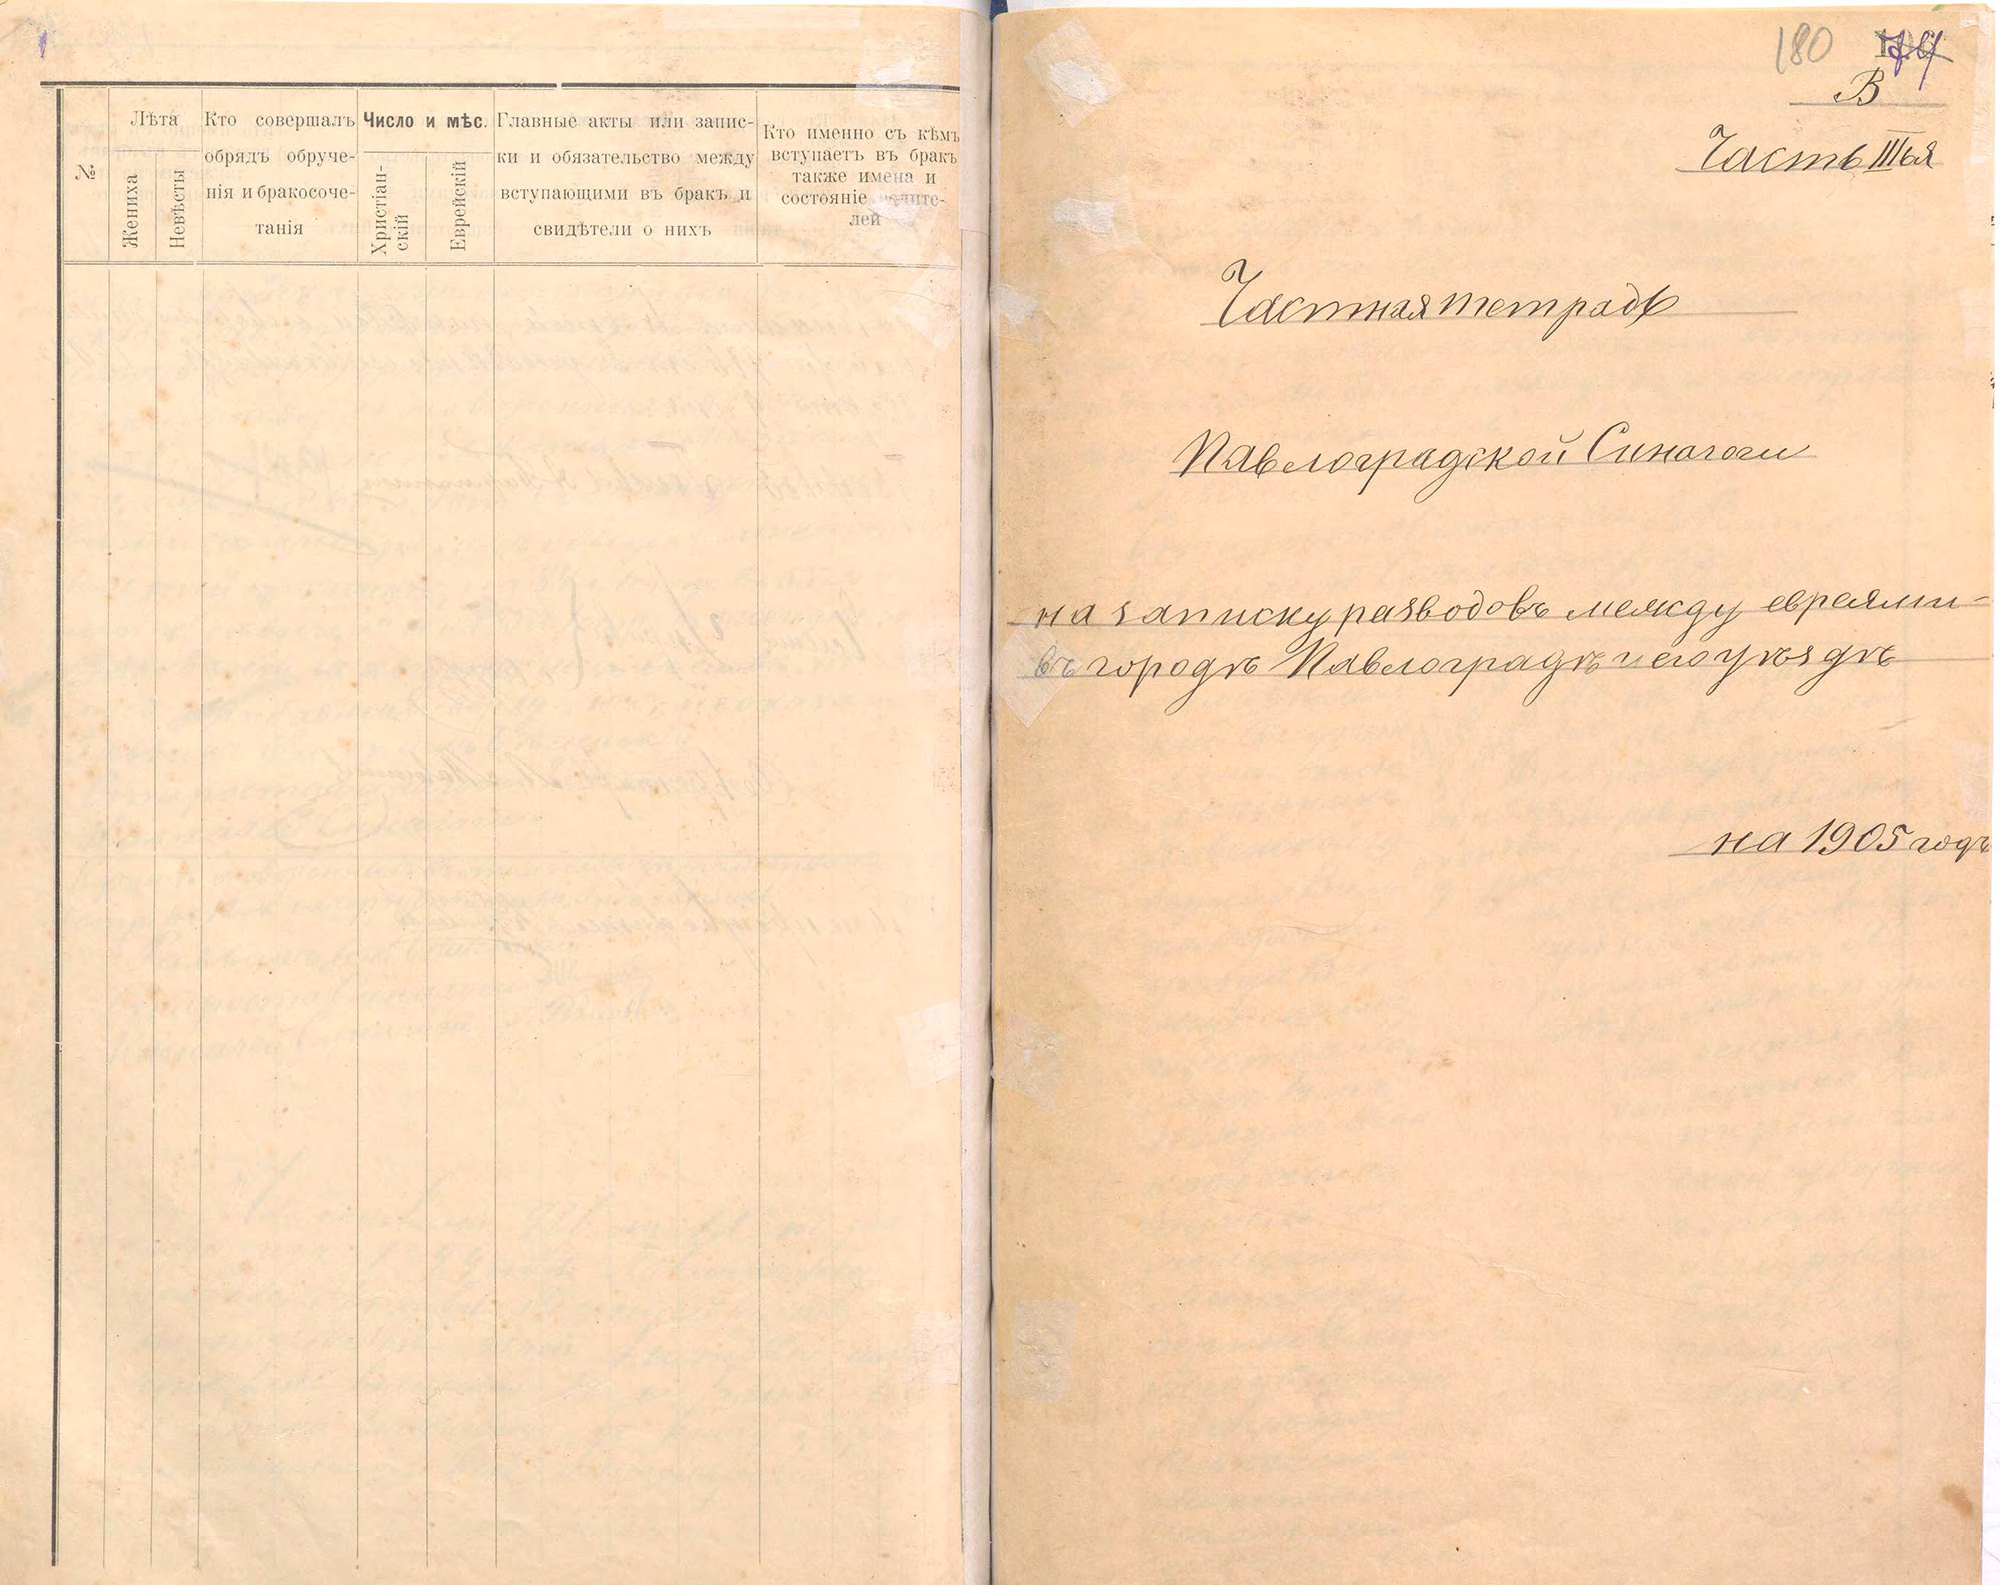 №
Лѣта
Жениха
Невѣсты
Кто совершалъ
обрядъ обруче-
нія и бракосоче-
танія
Число и мѣс.
Христіан-
скій
Еврейскій
Главные акты или запис-
ки и обязательство между
вступающими въ бракъ и
свидѣтели о нихъ
Кто именно съ кѣмъ
вступаетъ въ бракъ
также имена и
состояніе родите-
лей
180
В
Часть IIIья
Частная тетрадь
Павлоградской Синагоги
на записку разводовъ между евреями
въ городѣ Павлоградѣ и его уѣздѣ
на 1905 годъ